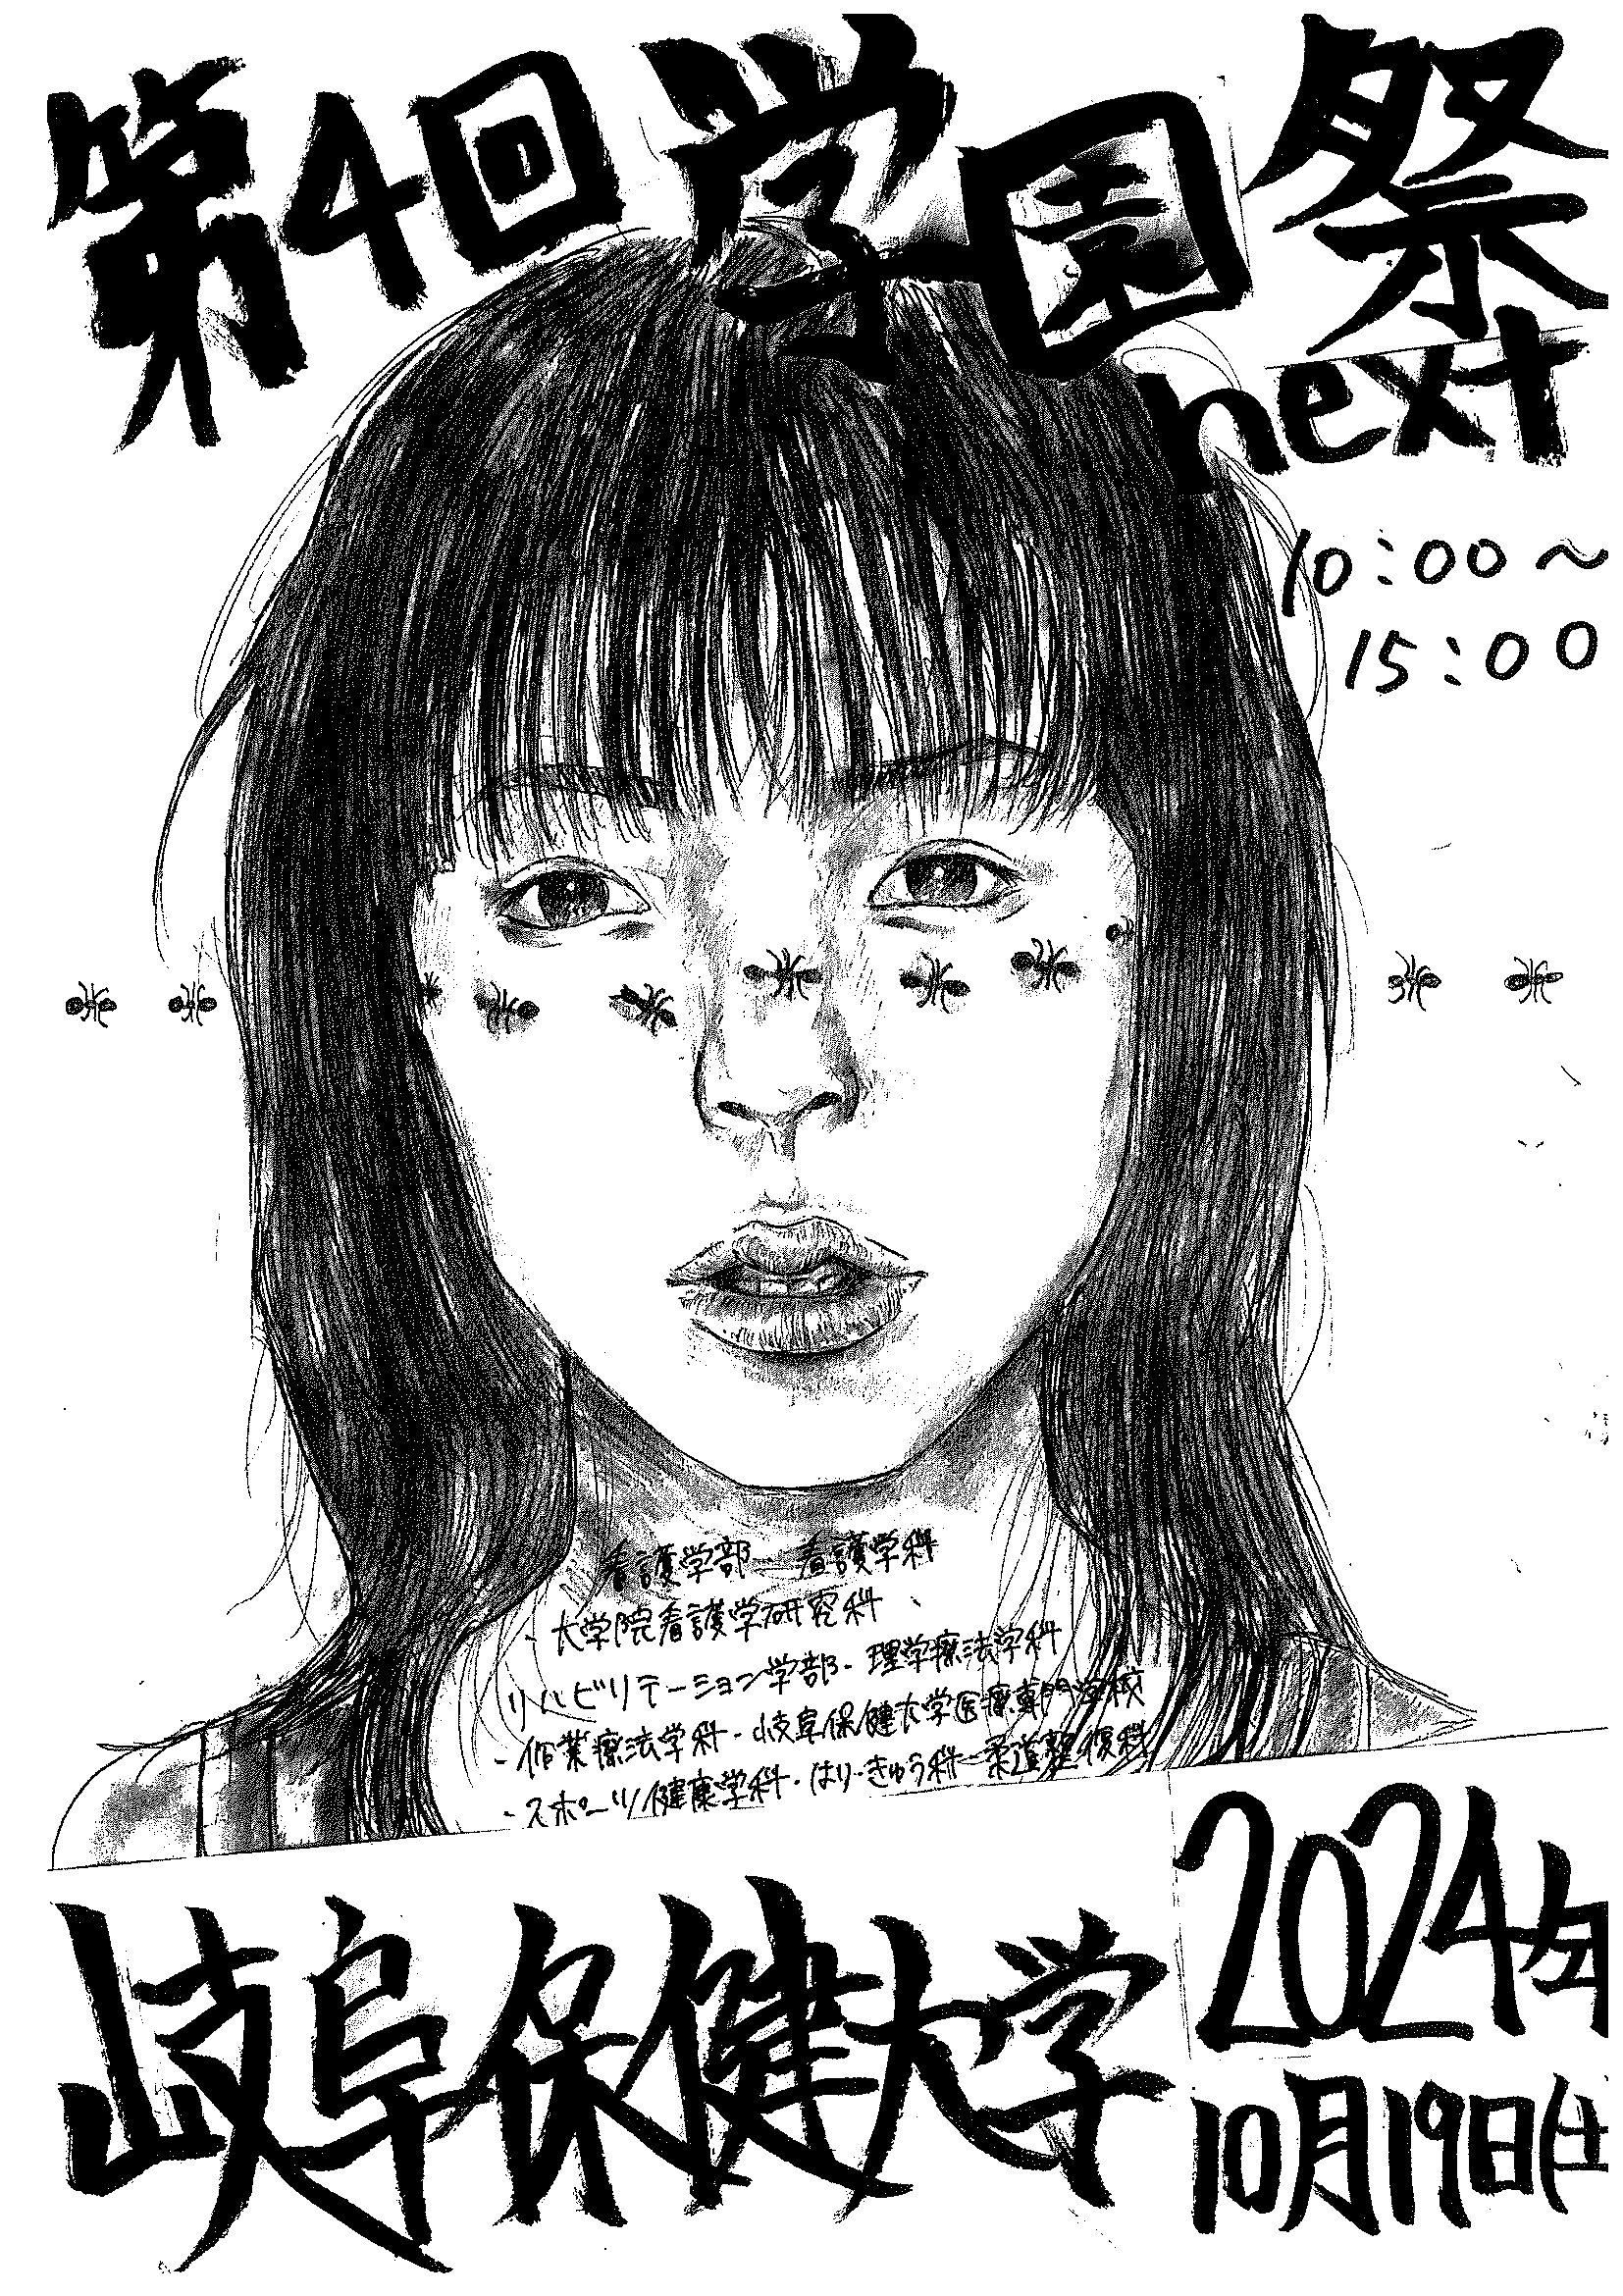 第4回学園祭
next
10:00〜
15:00
看護学部 - 看護学科
・大学院看護学研究科・
リハビリテーション学部・理学療法学科
・作業療法学科・岐阜保健大学医療専門学校
・スポーツ健康学科・はり・きゅう科-柔道整復科
2024年
10月19日(土
岐阜保健大学